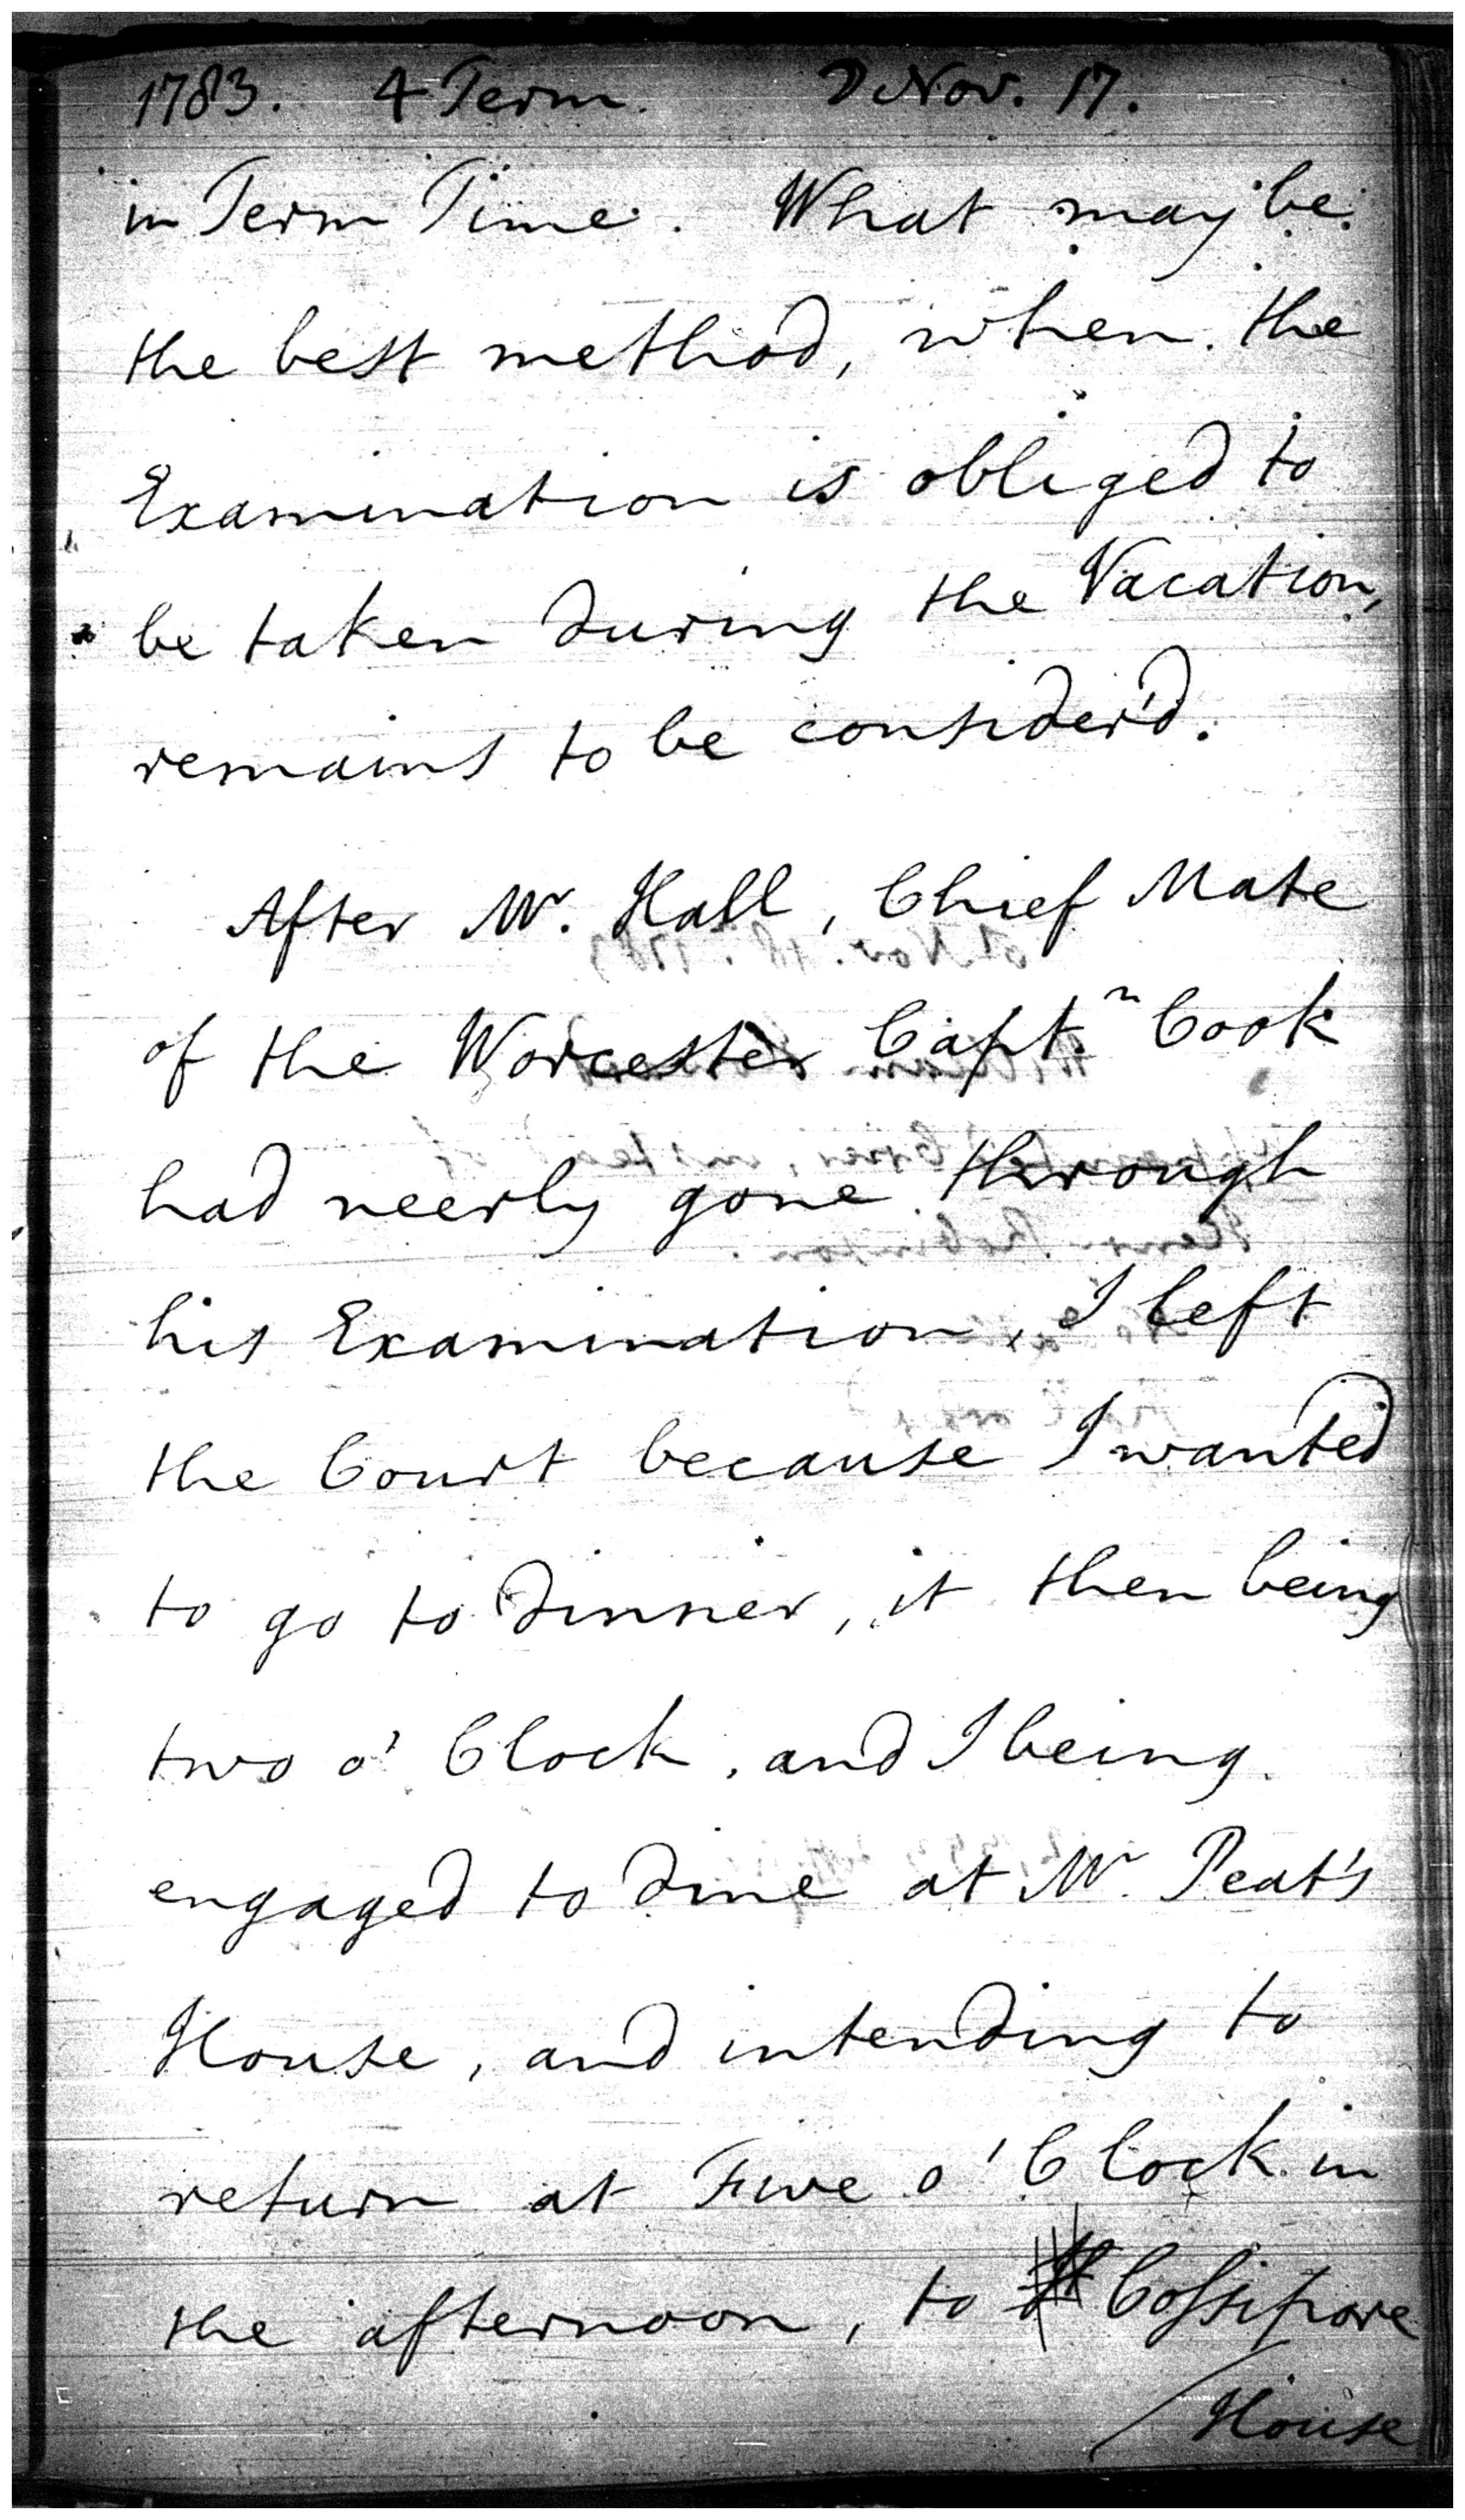 1783. 4 Term. ☽ Nov. 17.
in Term Time. What may be
the best method, when the
Examination is obliged to
be taken during the Vacation,
remains to be consider'd.
After Mr. Hall, Chief Mate
of the Worcester Capt.n Cook
had neerly gone through
his Examination, I left
the Court because I wanted
to go to dinner, it then being
two o' Clock, and I being
engaged to dine at Mr. Peat's
House, and intending to
return at Five o' Clock in
the afternoon, to Cossipore
/House